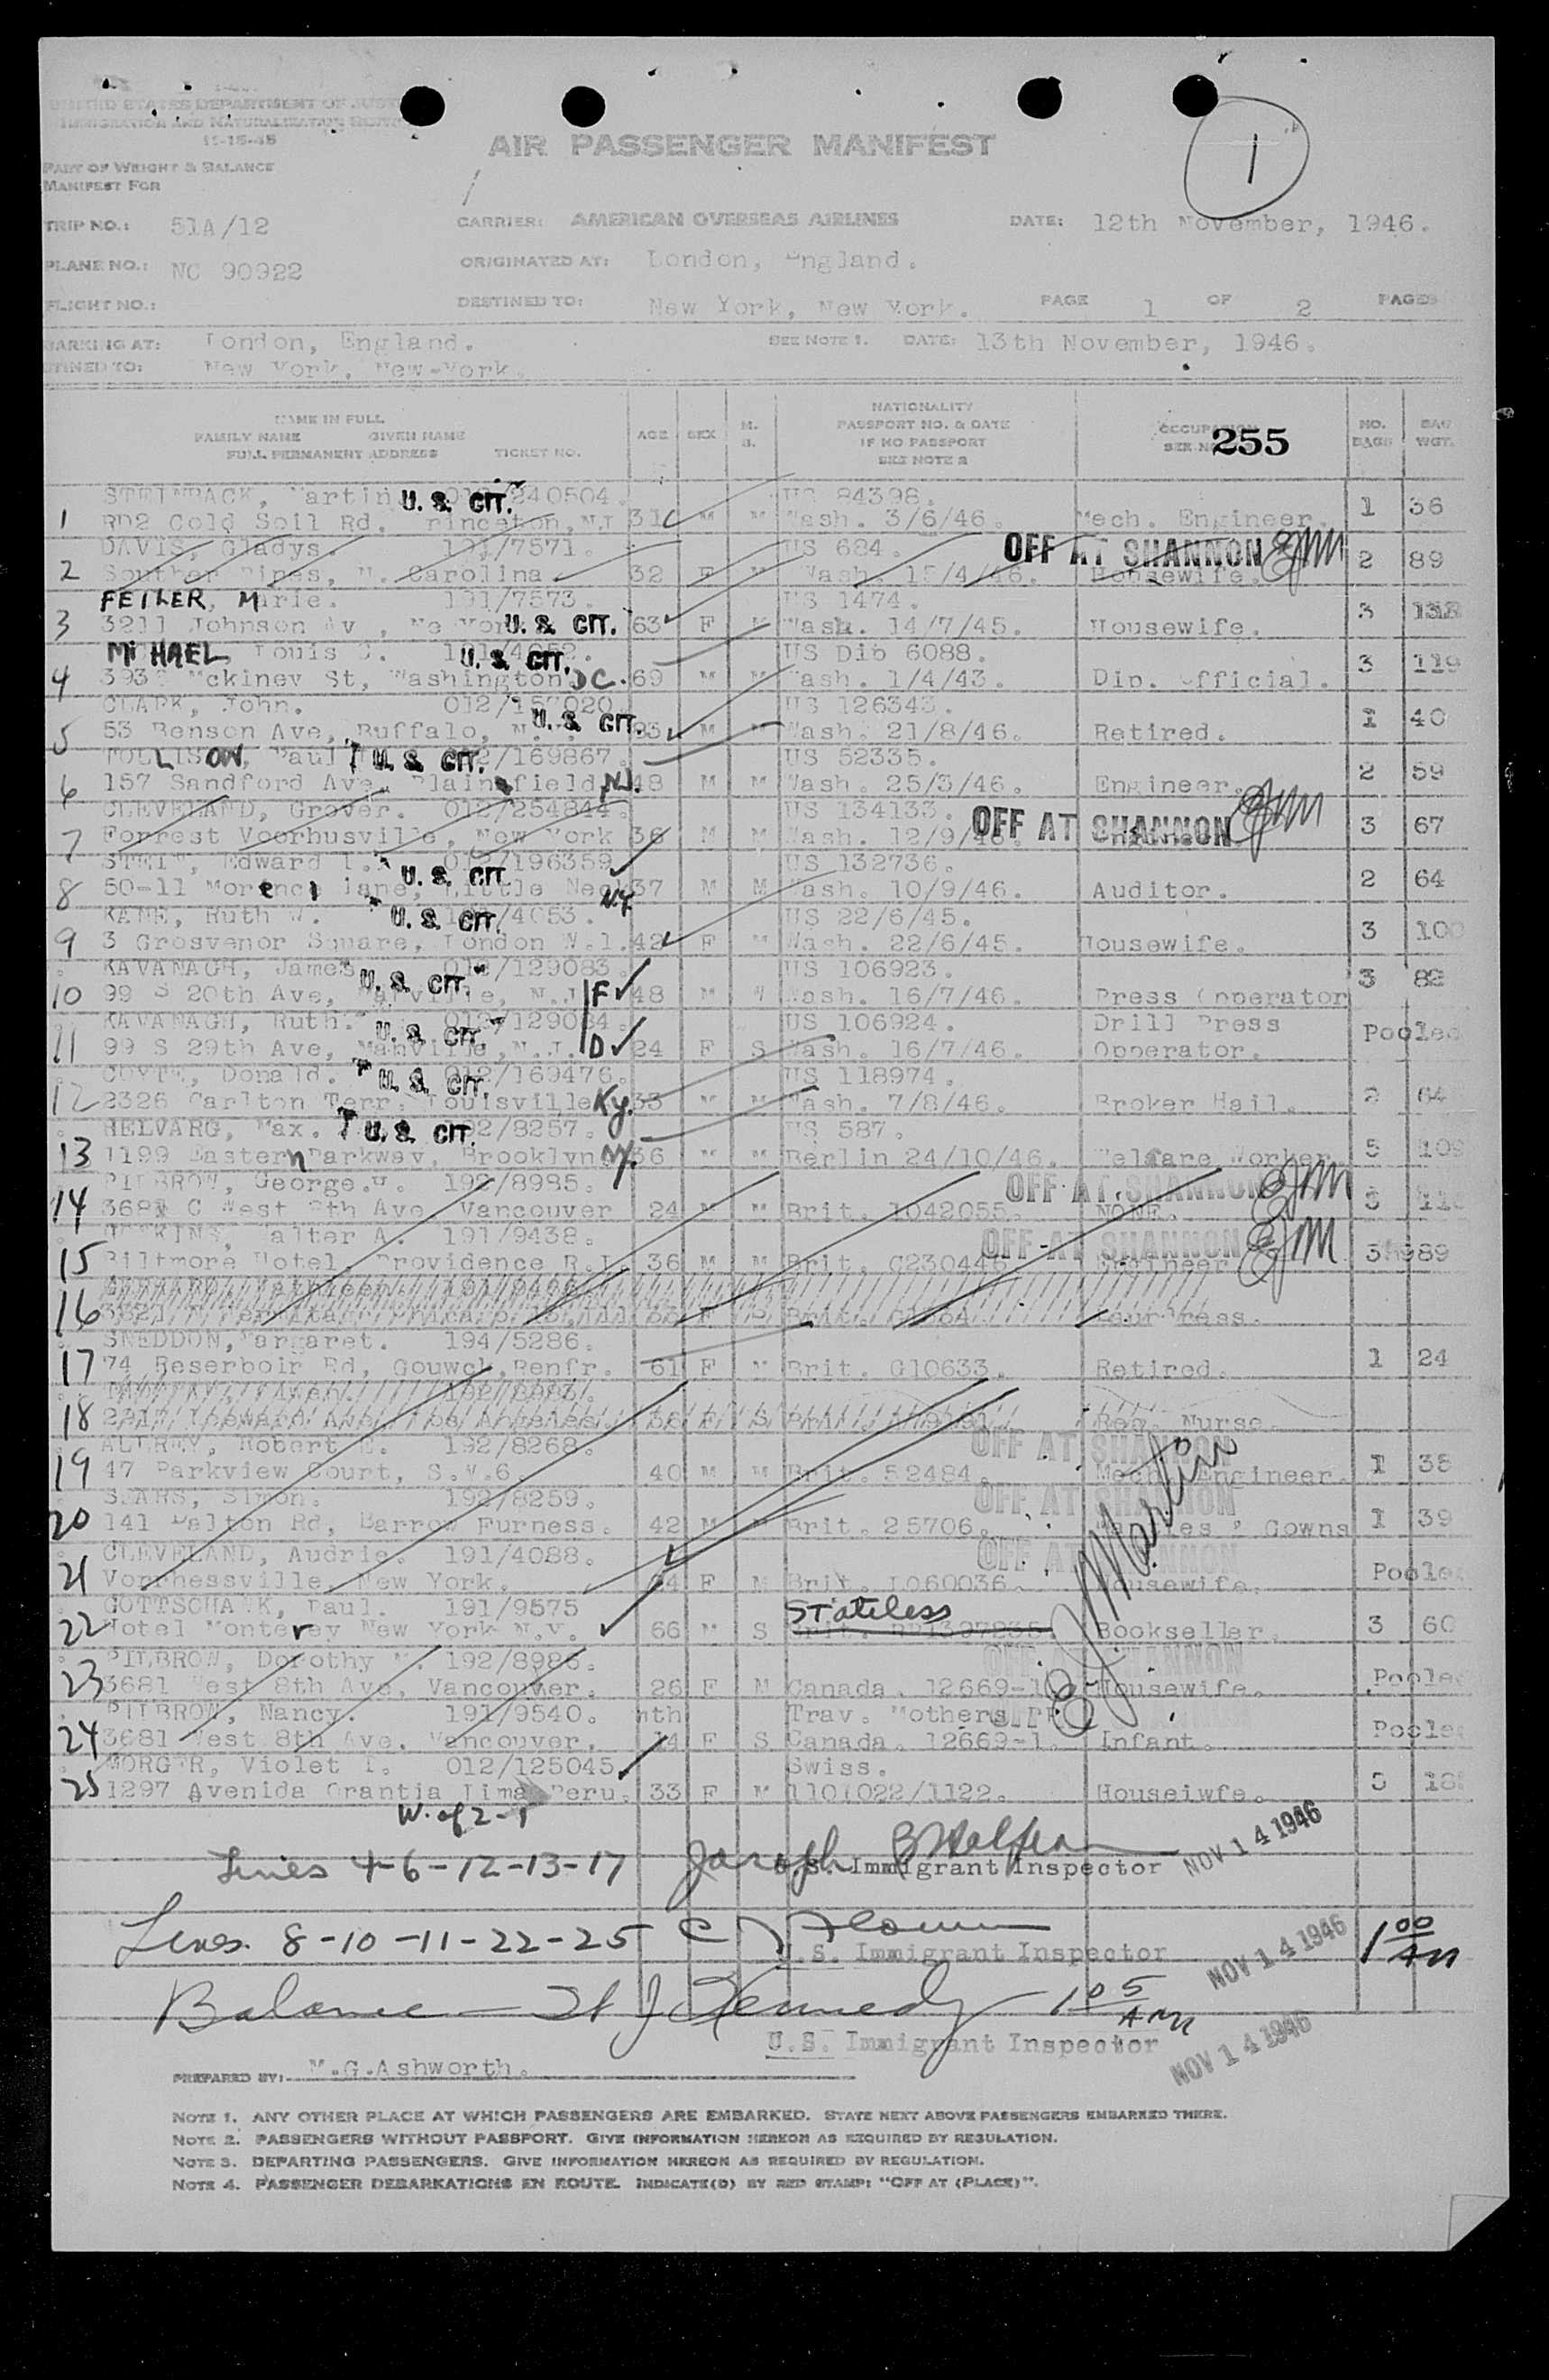 UNITED STATES DEPARTMENT OF JUST
IMMIGRATION AND NATURALIZATION SERVICE
11-15-45
AIR PASSENGER MANIFEST
1
PART OF WEIGHT & BALANCE
MANIFEST FOR
TRIP NO.: 51A/12 CARRIER: AMERICAN OVERSEAS AIRLINES DATE: 12th November, 1946.
PLANE NO.: NC 90922 ORIGINATED AT: London, England.
FLIGHT NO.: DESTINED TO: New York, New York. PAGE 1 OF 2 PAGES
BARKING AT: London, England. SEE NOTE 1. DATE: 13th November, 1946.
TINED TO: New York, New-York.
NAME IN FULL
FAMILY NAME GIVEN NAME
FULL PERMANENT ADDRESS TICKET NO.
AGE SEX M. S.
NATIONALITY
PASSPORT NO. & DATE
IF NO PASSPORT
SEE NOTE 2
OCCUPATION
255
NO. BAGS BAG WGT.
Martin U. S. CIT. 012/240504. US 84398.
1 RD2 Cold Soil Rd, Princeton, N.J 31 M M Wash. 3/6/46. Mech. Engineer. 1 36
DAVIS, Gladys. 191/7571. US 684. OFF AT SHANNON EJM
2 Souther Pines, N. Carolina 32 F M Wash. 15/4/46. Housewife. 2 89
FEILER, Marie. 191/7573. US 1474.
3 3211 Johnson Av, Ne York U. S. CIT. 63 F M Wash. 14/7/45. Housewife. 3
MICHAEL, Louis U. S. CIT. US Dip 6088.
4 Mckiney St, Washington DC. 69 M M Wash. 1/4/43. Dip. Official. 3 119
CLARK, John. U. S. CIT. US 126343.
5 53 Benson Ave, Buffalo, 83 M M Wash. 21/8/46. Retired. 1 40
TOLLISON, Paul U. S. CIT. 012/169867. US 52335.
6 157 Sandford Ave, Plainfield NJ. 48 M M Wash. 25/3/46. Engineer. 2 59
CLEVELAND, Grover. 012/254844. US 134133. OFF AT SHANNON EJM
7 Forrest Voorhusville, New York 36 M M Wash. 12/9/46. 3 67
STEIN, Edward I. U. S. CIT 012/196359 US 132736.
8 50-11 Morence lane, Little Neck NY 37 M M Wash. 10/9/46. Auditor. 2 64
KANE, Ruth W. U. S. CIT. 191/4053. US 22/6/45.
9 3 Grosvenor Square, London W.1. 42 F M Wash. 22/6/45. Housewife. 3 100
KAVANAGH, James U. S. CIT. 012/129083. US 106923.
10 99 S 20th Ave, Manville, N.J F 48 M M Wash. 16/7/46. Press Opperator 3 82
KAVANAGH, Ruth. U. S. CIT 012/129084. US 106924. Drill Press
11 99 S 29th Ave, Manville, N.J. D 24 F S Wash. 16/7/46. Opperator. Pooled
Donald. U. S. CIT. 012/169476. US 118974.
12 2326 Carlton Terr. Louisville Ky. 33 M M Wash. 7/8/46. Broker Hail. 2 64
HELVARG, Max. U. S. CIT. 192/8257. US 587.
13 1199 Eastern Parkway, Brooklyn NY. 36 M M Berlin 24/10/46. Welfare Worker 5 109
PILBROW, George.W. 192/8985. OFF AT SHANNON EJM
14 3681 C West 8th Ave Vancouver 24 M M Brit. 1042055. NONE.
HOPKINS, Walter A. 191/9438. OFF AT SHANNON EJM
15 Biltmore Hotel, Providence R.I 36 M M Brit. C230446 Engineer 3 89
16 F S Brit.
SNEDDON, Margaret. 194/5286.
17 74 Reserboir Rd, Gouwck, Renfr. 61 F M Brit. G10633. Retired. 1 24
18 2917 Leeward Ave, Los Angeles. 36 F S Brit. Reg. Nurse.
Robert 192/8268. OFF AT SHANNON
19 47 Parkview Court, S.W.6. 40 M M Brit. 52484. Mech. Engineer. 1 35
SEARS, Simon. 192/8259. OFF AT SHANNON
20 141 Dalton Rd, Barrow Furness. 42 M M Brit. 25706. Ladies' Gowns 1 39
CLEVELAND, Audrie. 191/4088. OFF AT SHANNON
21 Voorhessville New York. 24 F M Brit. L060036. Housewife. Pooled
GOTTSCHALK, Paul. 191/9575 Stateless
22 Hotel Monterey New York N.Y. 66 M S Bookseller. 3 60
PILBROW, Dorothy M. 192/8986. OFF AT SHANNON
23 3681 West 8th Ave, Vancouver. 26 F M Canada. 12669-1 Housewife. Pooled
PILBROW, Nancy. 191/9540. mth Trav. Mothers PP OFF AT SHANNON
24 3681 West 8th Ave, Vancouver. 14 F S Canada. 12669-1. Infant. Pooled
E J Martin
MORGER, Violet I. 012/125045. Swiss.
25 1297 Avenida Orantia Lima Peru. 33 F M 1101022/1122. Houseiwfe.
W. of 2-1
Lines 4-6-12-13-17 Joseph U.S. Immigrant Inspector NOV 14 1946
Lines. 8-10-11-22-25 U.S. Immigrant Inspector NOV 14 1946 1 00 AM
Balance - Kennedy 1 05 AM
U.S. Immigrant Inspector NOV 14 1946
PREPARED BY: M.G.Ashworth.
NOTE 1. ANY OTHER PLACE AT WHICH PASSENGERS ARE EMBARKED. STATE NEXT ABOVE PASSENGERS EMBARKED THERE.
NOTE 2. PASSENGERS WITHOUT PASSPORT. GIVE INFORMATION HEREON AS REQUIRED BY REGULATION.
NOTE 3. DEPARTING PASSENGERS. GIVE INFORMATION HEREON AS REQUIRED BY REGULATION.
NOTE 4. PASSENGER DEBARKATIONS EN ROUTE. INDICATE(D) BY RED STAMP: "OFF AT (PLACE)".